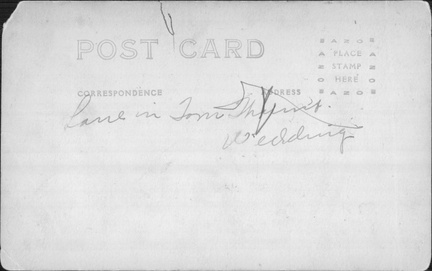 POST CARD
AZO
PLACE
STAMP
HERE
AZO
CORRESPONDENCE
ADDRESS
in Tom Thumb
Wedding